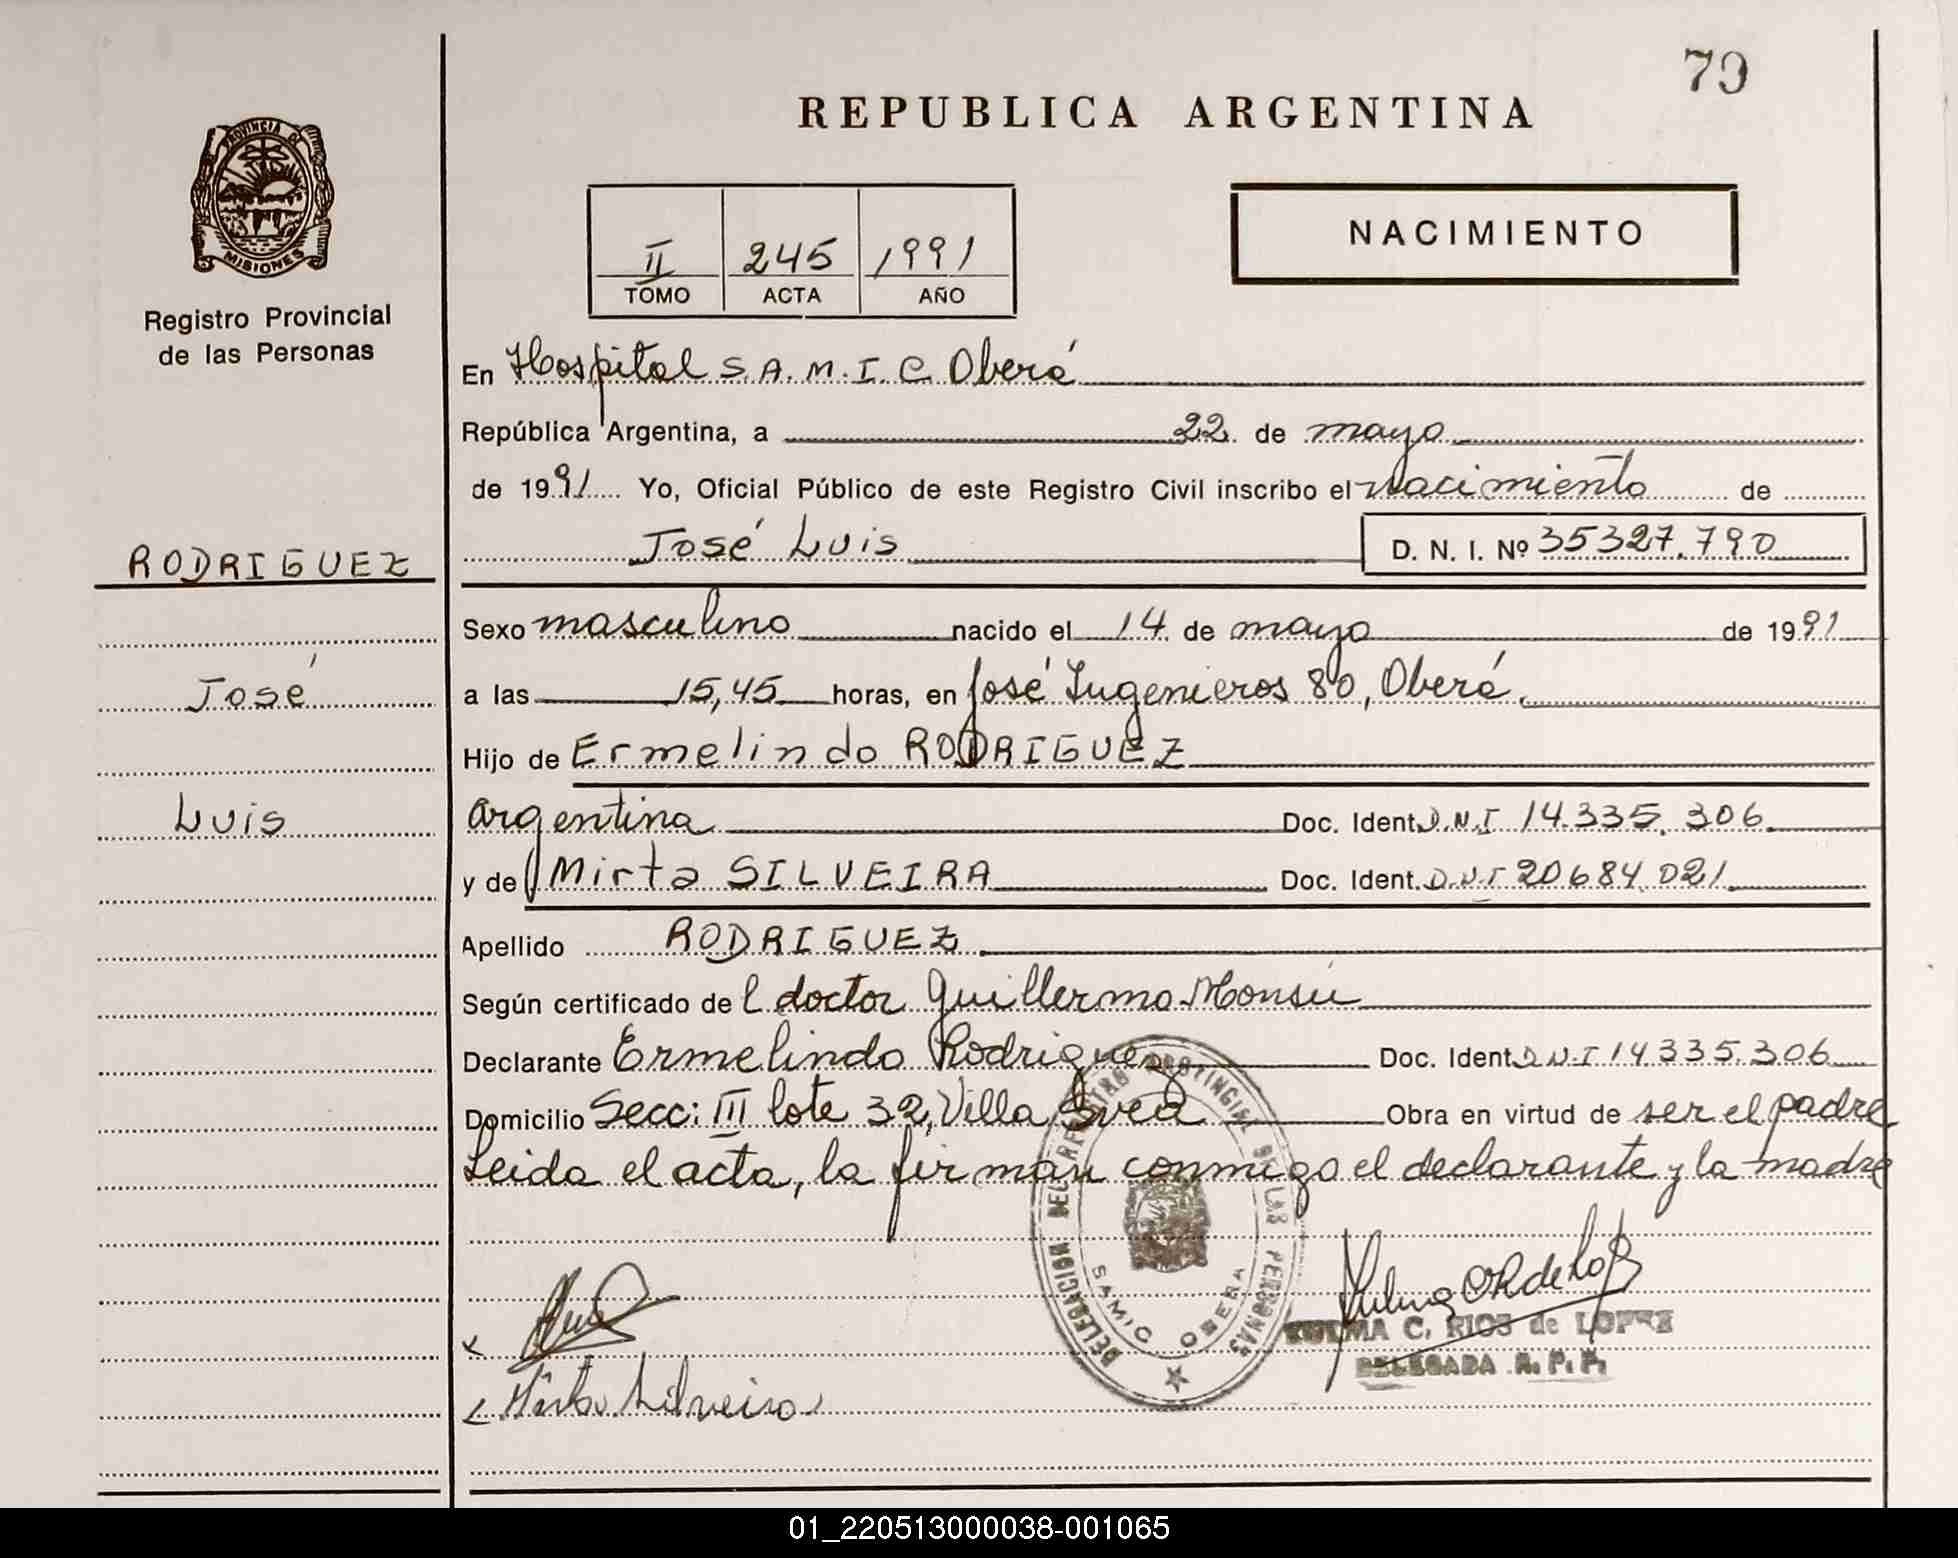 79
REPUBLICA ARGENTINA
PROVINCIA DE
MISIONES
Registro Provincial
de las Personas
II 245 1991
TOMO ACTA AÑO
NACIMIENTO
En Hospital S.A.M.I.C Oberá
República Argentina, a 22 de mayo
de 1991 Yo, Oficial Público de este Registro Civil inscribo el nacimiento de
José Luis D. N. I. Nº 35327.790
RODRIGUEZ
José
Luis
Sexo masculino nacido el 14 de mayo de 1991
a las 15,45 horas, en José Ingenieros 80, Oberá.
Hijo de Ermelindo RODRIGUEZ
argentina Doc. Ident. D.N.I 14.335.306
y de Mirta SILVEIRA Doc. Ident. D.N.I 20684.021
Apellido RODRIGUEZ
Según certificado de l doctor Guillermo Monsú
Declarante Ermelindo Rodriguez Doc. Ident. D.N.I 14.335.306
Domicilio Secc: III lote 32, Villa Svea Obra en virtud de ser el padre
Leida el acta, la firman conmigo el declarante y la madre
DELEGACION DEL REGISTRO PROVINCIAL DE LAS PERSONAS
SAMIC OBERA
C. RIOS de LOPEZ
DELEGADA R. P. P.
Mirta Silveira
01_220513000038-001065